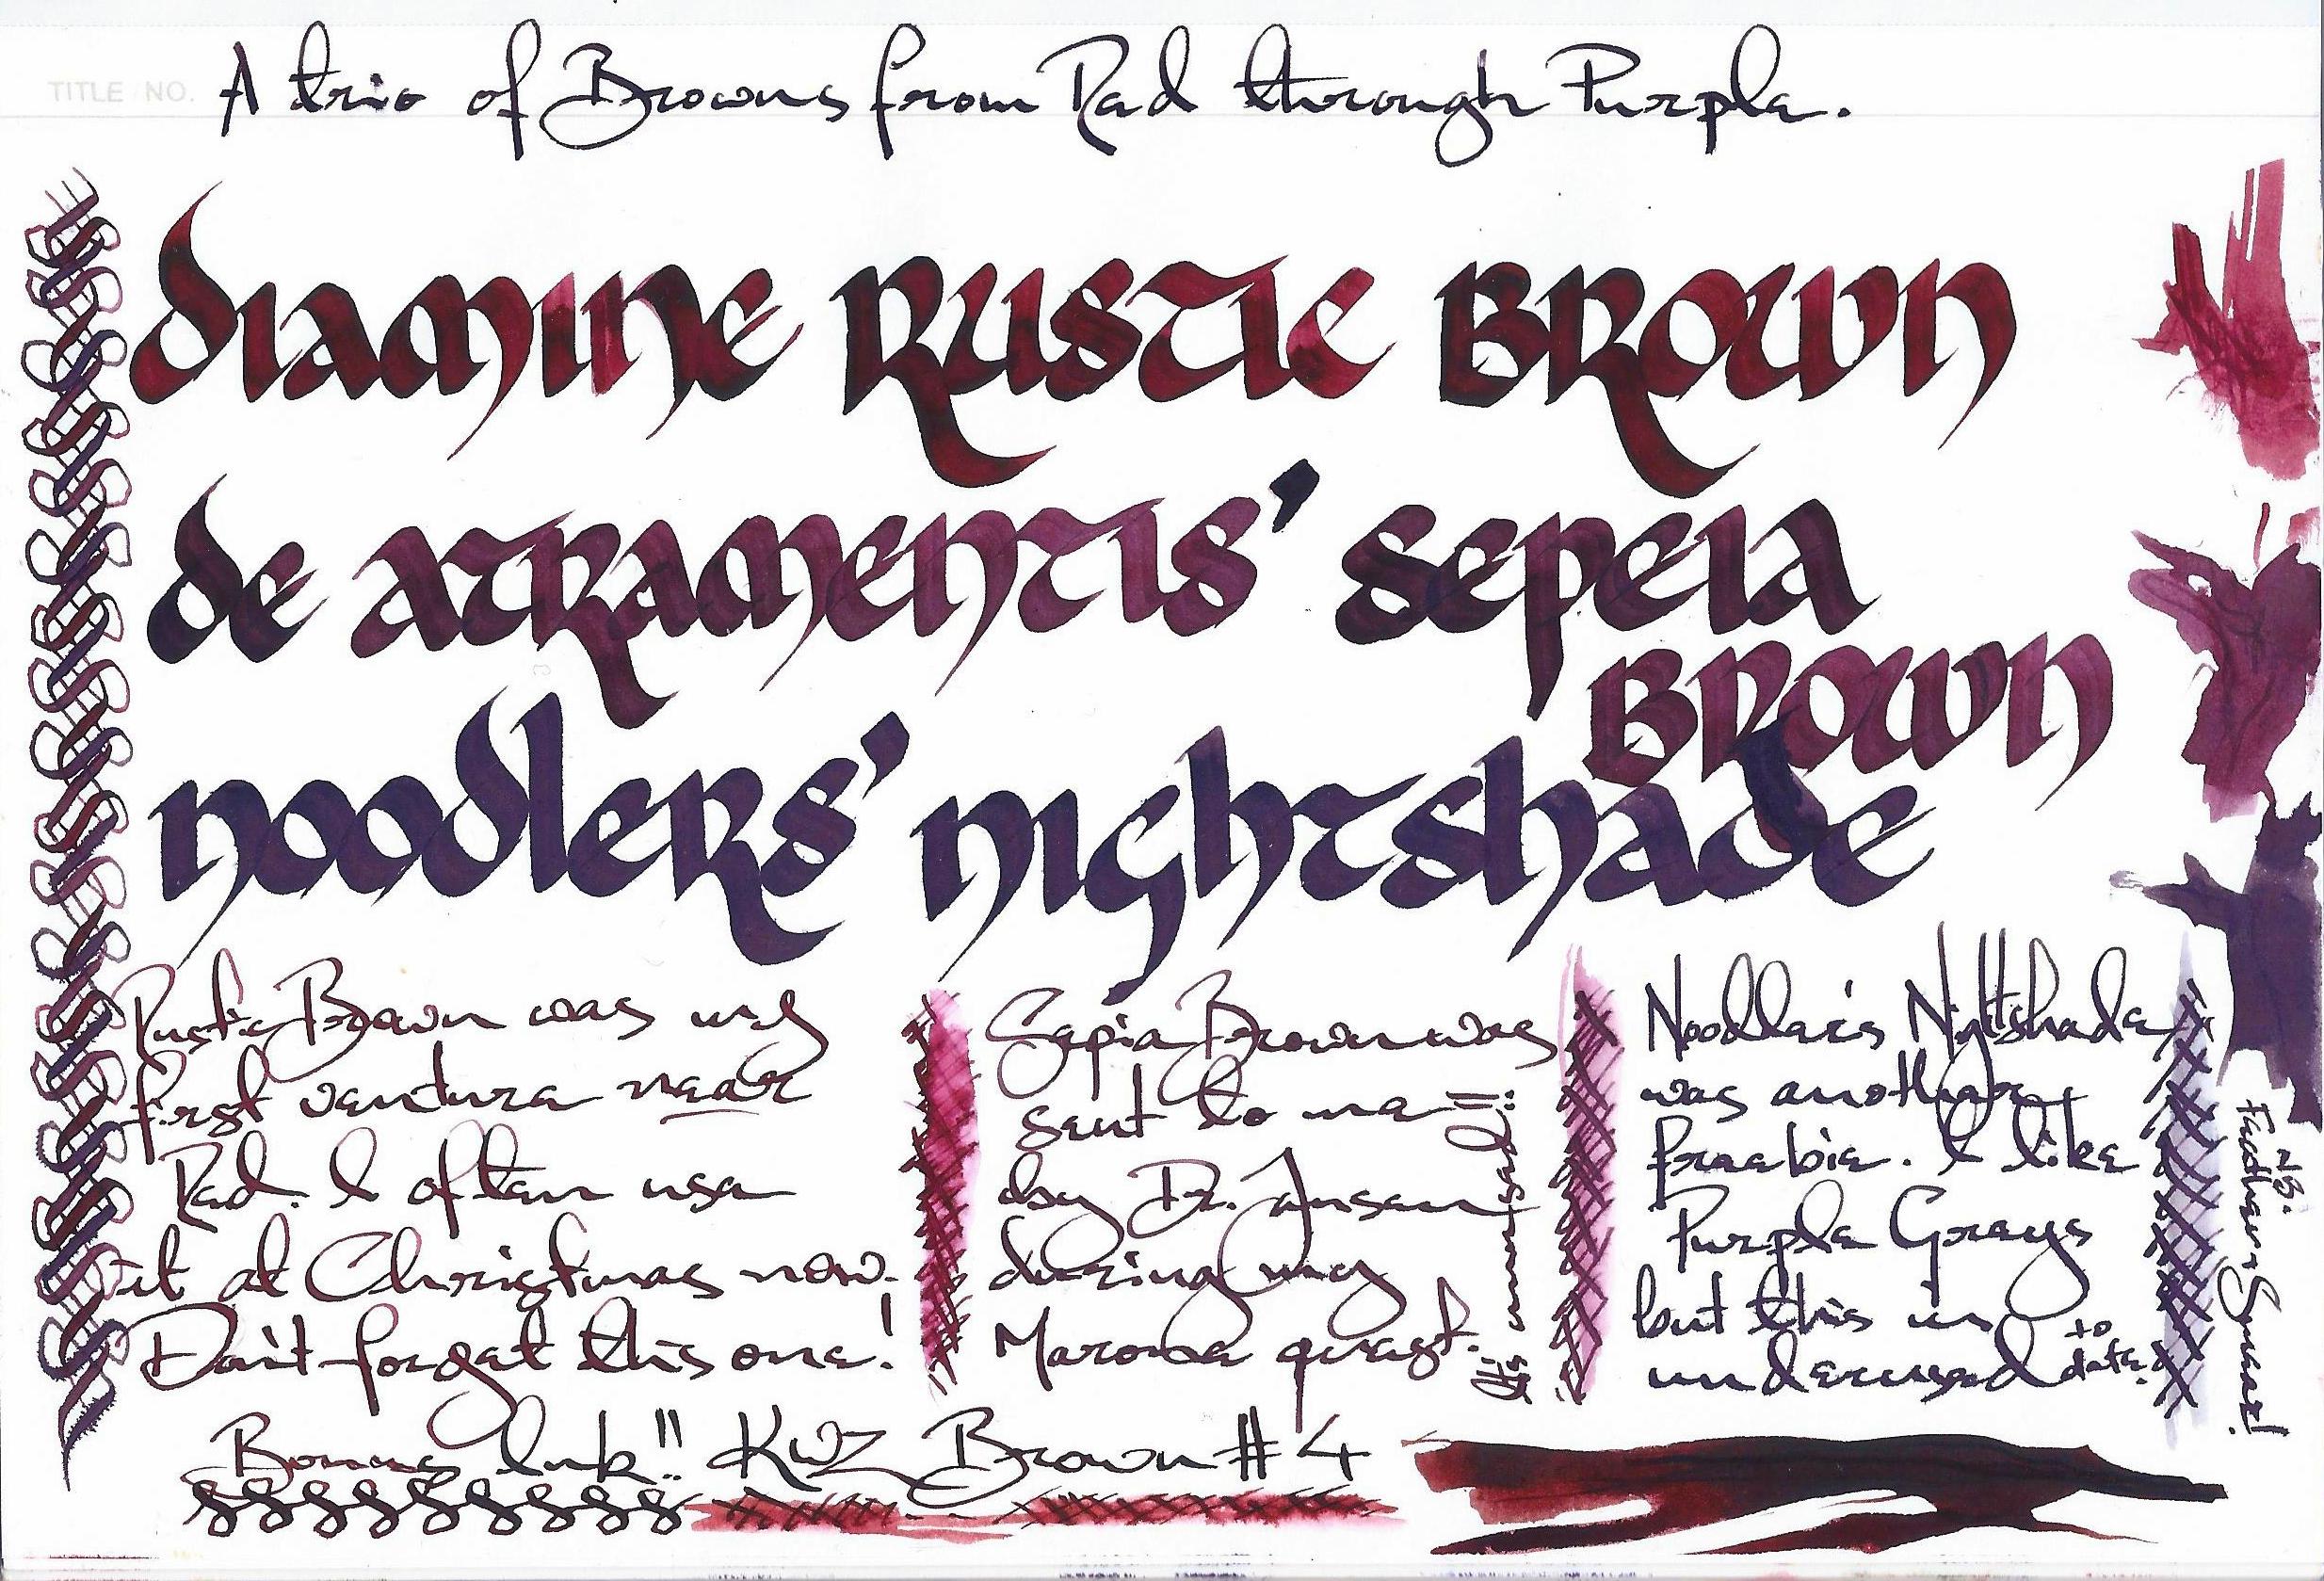 TITLE / NO.
A trio of Browns from Red through Purple.
diamine Rustic Brown
de Atramentis' sepeia
Brown
noodlers' nightshade
Rustic Brown was my
first venture near
Red. I often use
it at Christmas now.
Don't forget this one!
Sepia Brown was
sent to me
by Dr. Ansen
during my
Marone quest.
Noodler's Nightshade
was another
freebie. I like
Purple Greys
but this is
underused to
date.
NB.
Feathers
Bonus Ink!! KWZ Brown #4